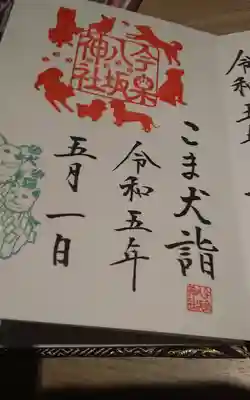 今泉
八坂
神社
こま犬詣
令和五年
五月一日
令和